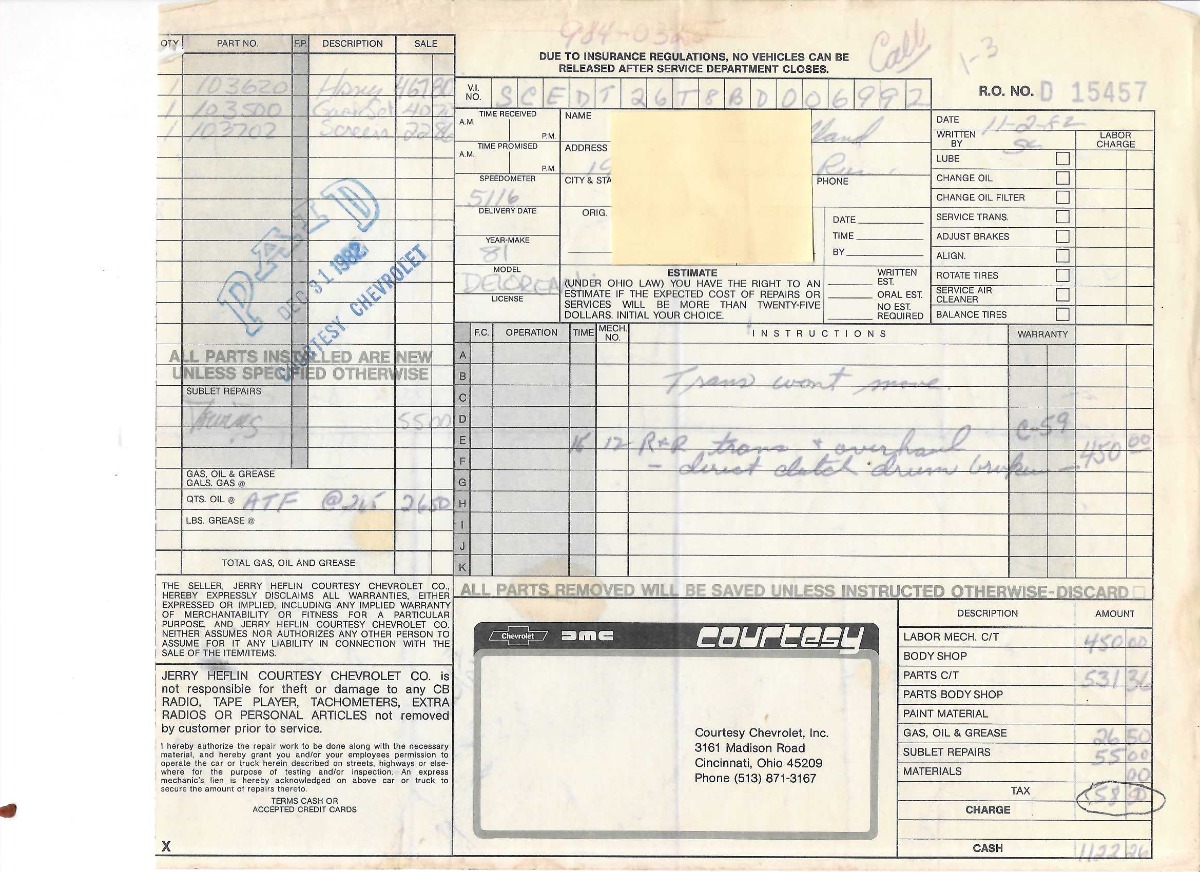 984-03
Call
1-3
QTY PART NO. F.P. DESCRIPTION SALE
1 103620 467 80
1 103500 40 70
1 103702 Screen 22 86
PAID
DEC 31 1982
COURTESY CHEVROLET
ALL PARTS INSTALLED ARE NEW
UNLESS SPECIFIED OTHERWISE
SUBLET REPAIRS
Towing 55 00
GAS, OIL & GREASE
GALS. GAS @
QTS. OIL @ ATF @ 265 26 50
LBS. GREASE @
TOTAL GAS, OIL AND GREASE
DUE TO INSURANCE REGULATIONS, NO VEHICLES CAN BE
RELEASED AFTER SERVICE DEPARTMENT CLOSES.
R.O. NO. D 15457
V.I. NO. SCEDT26T8BD006992
TIME RECEIVED
A.M.
P.M.
TIME PROMISED
A.M.
P.M.
SPEEDOMETER
5116
DELIVERY DATE
YEAR-MAKE
81
MODEL
DELOREAN
LICENSE
NAME lland
ADDRESS
19 Run
CITY & STA
PHONE
ORIG.
DATE
TIME
BY
ESTIMATE
(UNDER OHIO LAW) YOU HAVE THE RIGHT TO AN
ESTIMATE IF THE EXPECTED COST OF REPAIRS OR
SERVICES WILL BE MORE THAN TWENTY-FIVE
DOLLARS. INITIAL YOUR CHOICE.
WRITTEN EST.
ORAL EST.
NO EST. REQUIRED
DATE 11-2-82
WRITTEN BY
LABOR CHARGE
LUBE
CHANGE OIL
CHANGE OIL FILTER
SERVICE TRANS.
ADJUST BRAKES
ALIGN.
ROTATE TIRES
SERVICE AIR CLEANER
BALANCE TIRES
F.C. OPERATION TIME MECH. NO. INSTRUCTIONS WARRANTY
A
B Trans wont move.
C
D C-59
E 16 12 R&R trans + overhaul 450 00
F - direct clutch drum broken -
G
H
I
J
K
ALL PARTS REMOVED WILL BE SAVED UNLESS INSTRUCTED OTHERWISE-DISCARD
THE SELLER, JERRY HEFLIN COURTESY CHEVROLET CO.,
HEREBY EXPRESSLY DISCLAIMS ALL WARRANTIES, EITHER
EXPRESSED OR IMPLIED, INCLUDING ANY IMPLIED WARRANTY
OF MERCHANTABILITY OR FITNESS FOR A PARTICULAR
PURPOSE, AND JERRY HEFLIN COURTESY CHEVROLET CO.
NEITHER ASSUMES NOR AUTHORIZES ANY OTHER PERSON TO
ASSUME FOR IT ANY LIABILITY IN CONNECTION WITH THE
SALE OF THE ITEM/ITEMS.
JERRY HEFLIN COURTESY CHEVROLET CO. is
not responsible for theft or damage to any CB
RADIO, TAPE PLAYER, TACHOMETERS, EXTRA
RADIOS OR PERSONAL ARTICLES not removed
by customer prior to service.
I hereby authorize the repair work to be done along with the necessary
material, and hereby grant you and/or your employees permission to
operate the car or truck herein described on streets, highways or else-
where for the purpose of testing and/or inspection. An express
mechanic's lien is hereby acknowledged on above car or truck to
secure the amount of repairs thereto.
TERMS CASH OR
ACCEPTED CREDIT CARDS
X
Chevrolet DMC courtesy
Courtesy Chevrolet, Inc.
3161 Madison Road
Cincinnati, Ohio 45209
Phone (513) 871-3167
DESCRIPTION AMOUNT
LABOR MECH. C/T 450 00
BODY SHOP
PARTS C/T 531 36
PARTS BODY SHOP
PAINT MATERIAL
GAS, OIL & GREASE 26 50
SUBLET REPAIRS 55 00
MATERIALS 00
TAX 58 90
CHARGE
CASH 1122 26